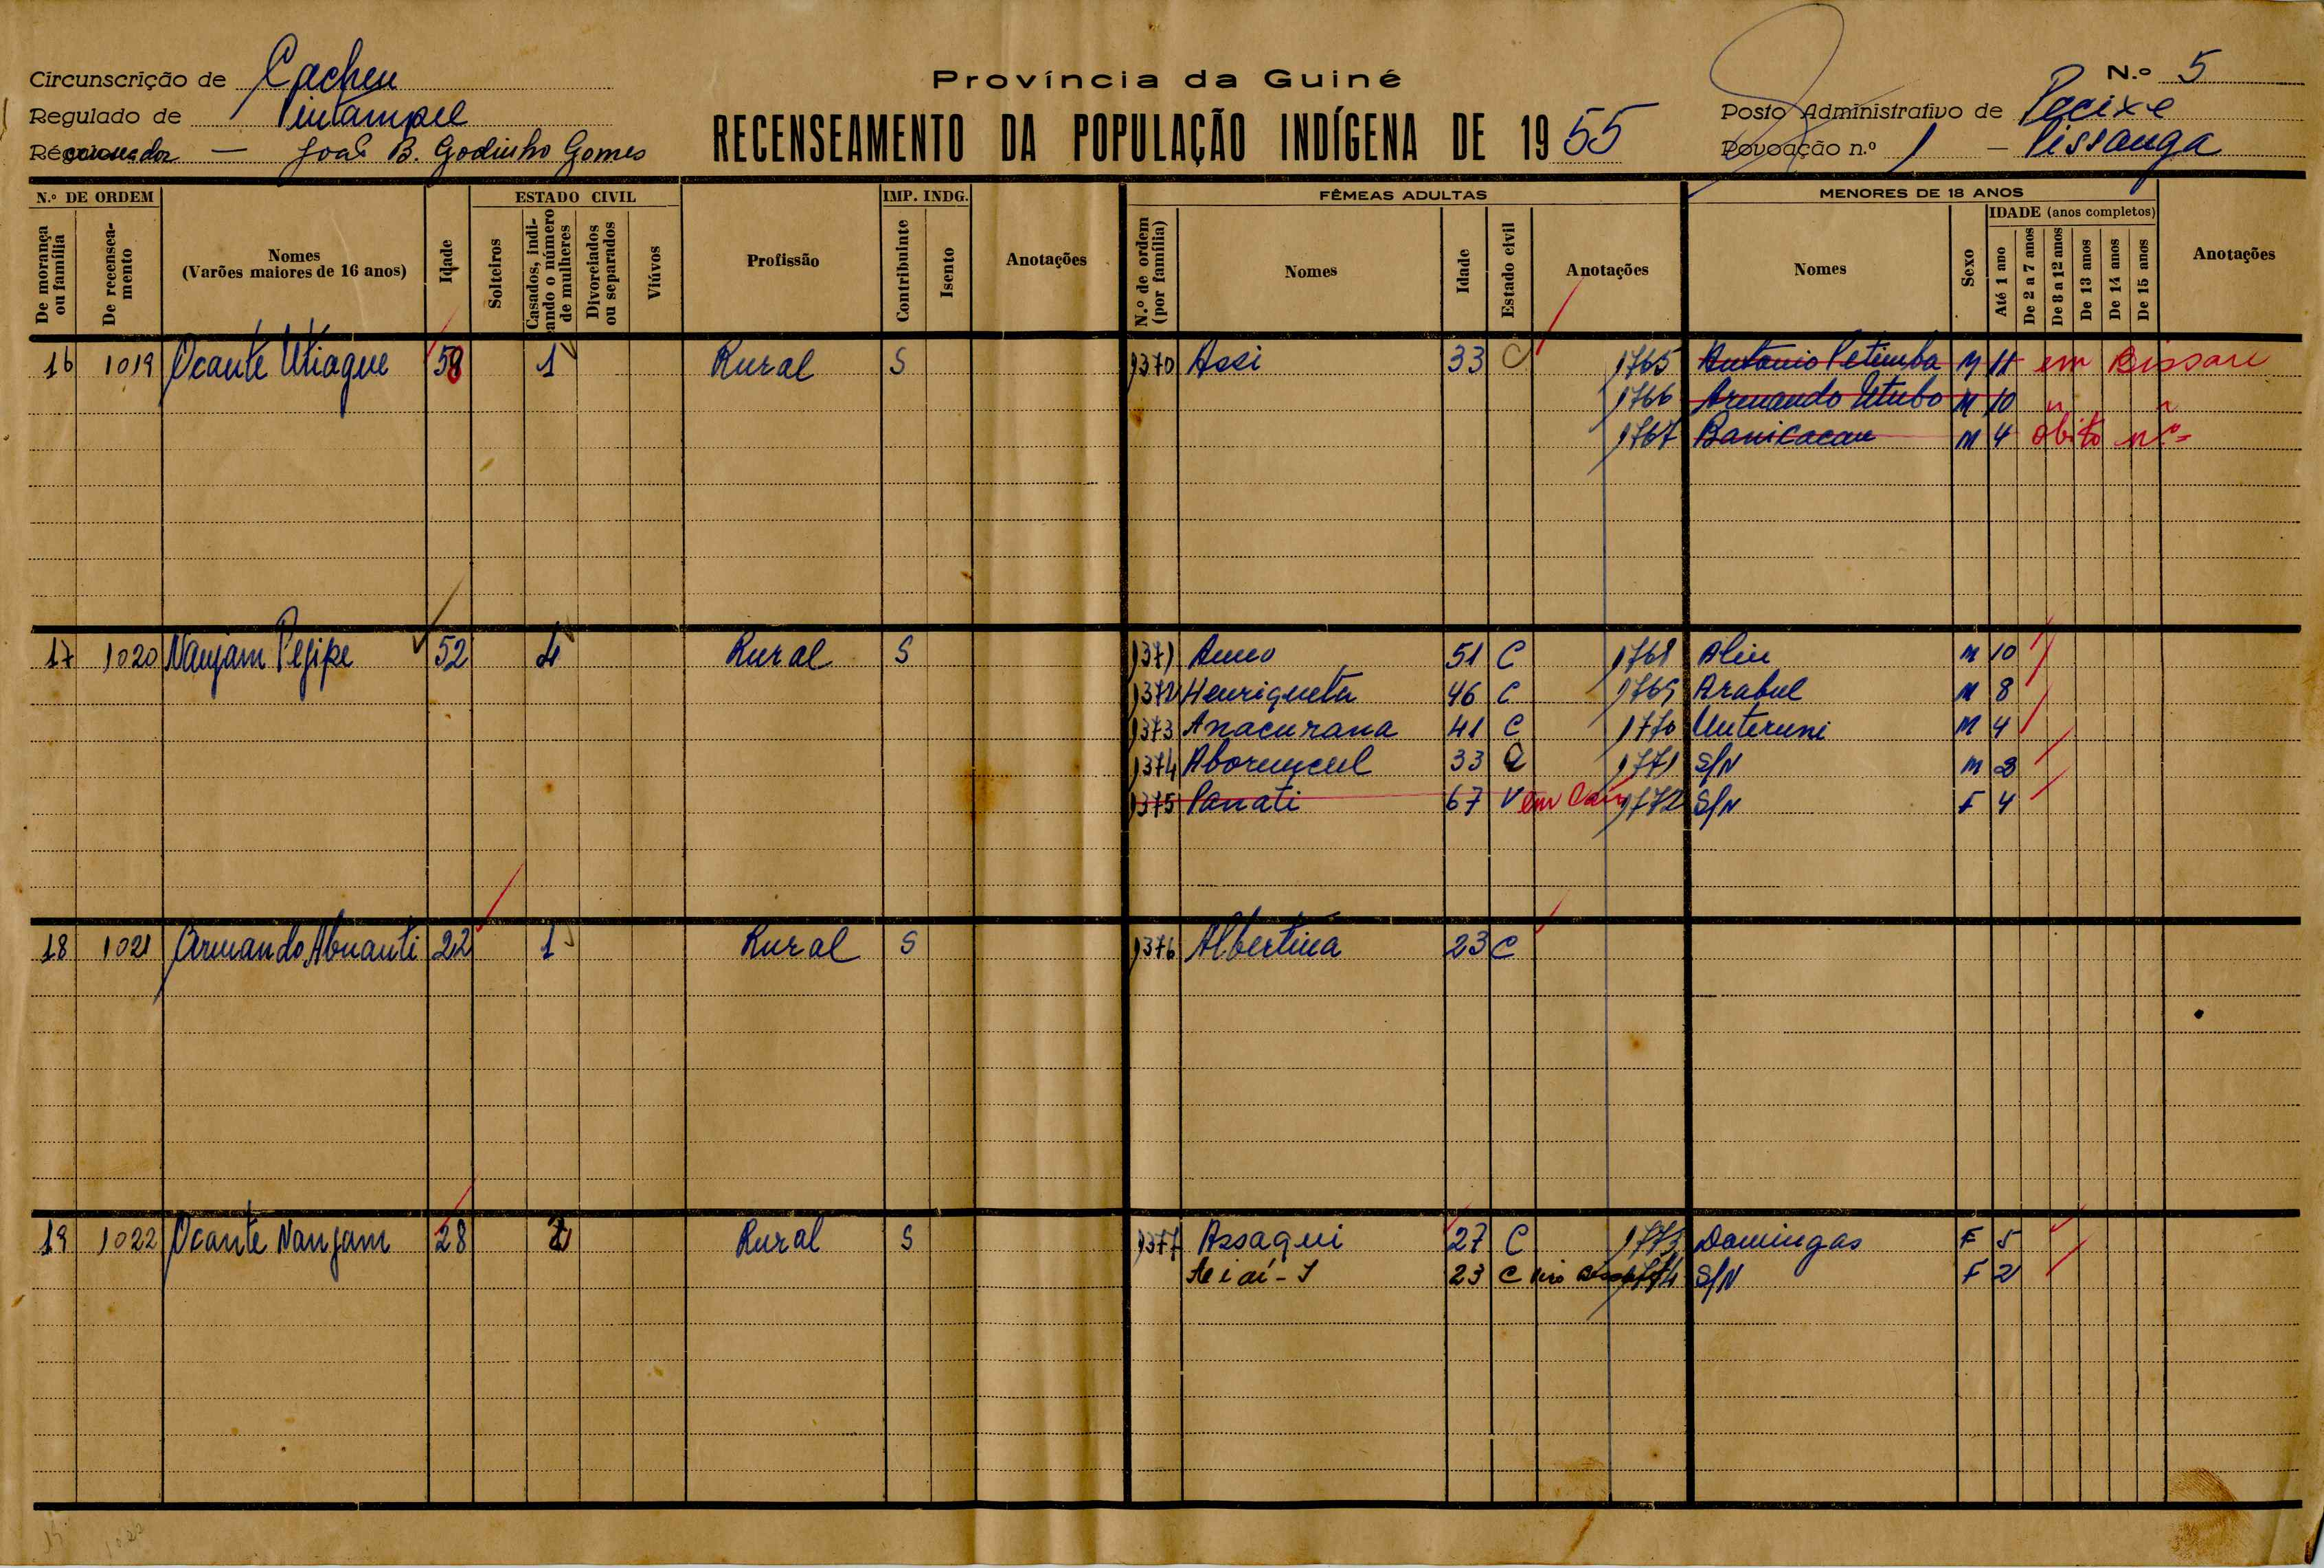 Província da Guiné
N.º 5
Circunscrição de Cacheu
Regulado de Pintampel
Recenseador — João B. Godinho Gomes
RECENSEAMENTO DA POPULAÇÃO INDÍGENA DE 1955
Posto Administrativo de Pecixe
Povoação n.º 1 — Pissanga
N.º DE ORDEM
De morança ou família
De recenseamento
Nomes
(Varões maiores de 16 anos)
Idade
ESTADO CIVIL
Solteiros
Casados, indicando o número de mulheres
Divorciados ou separados
Viúvos
Profissão
IMP. INDG.
Contribuinte
Isento
Anotações
FÊMEAS ADULTAS
N.º de ordem (por família)
Nomes
Idade
Estado civil
Anotações
MENORES DE 18 ANOS
Nomes
Sexo
IDADE (anos completos)
Até 1 ano
De 2 a 7 anos
De 8 a 12 anos
De 13 anos
De 14 anos
De 15 anos
Anotações
16 1019 Ocante Utiaque 58 1 Rural S 1370 Assi 33 C 1765 Antonio Petimba M 11 em Bissau
1766 Armando Utubo M 10 " "
1767 Banicacau M 4 obito nº=
17 1020 Nanjam Pejipe 52 4 Rural S 1371 51 C 1768 M 10
1372 Henriqueta 46 C 1769 Arabul M 8
1373 Anacurana 41 C 1770 Unteruni M 4
1374 33 C 1771 S/N M
1375 Panati 67 V em 1772 S/N F 4
18 1021 Armando Abnanti 22 1 Rural S 1376 Albertina 23 C
19 1022 Ocante Nanjam 28 2 Rural S 1377 Assaqui 27 C 1773 Domingas F 5
23 C 1774 S/N F 2